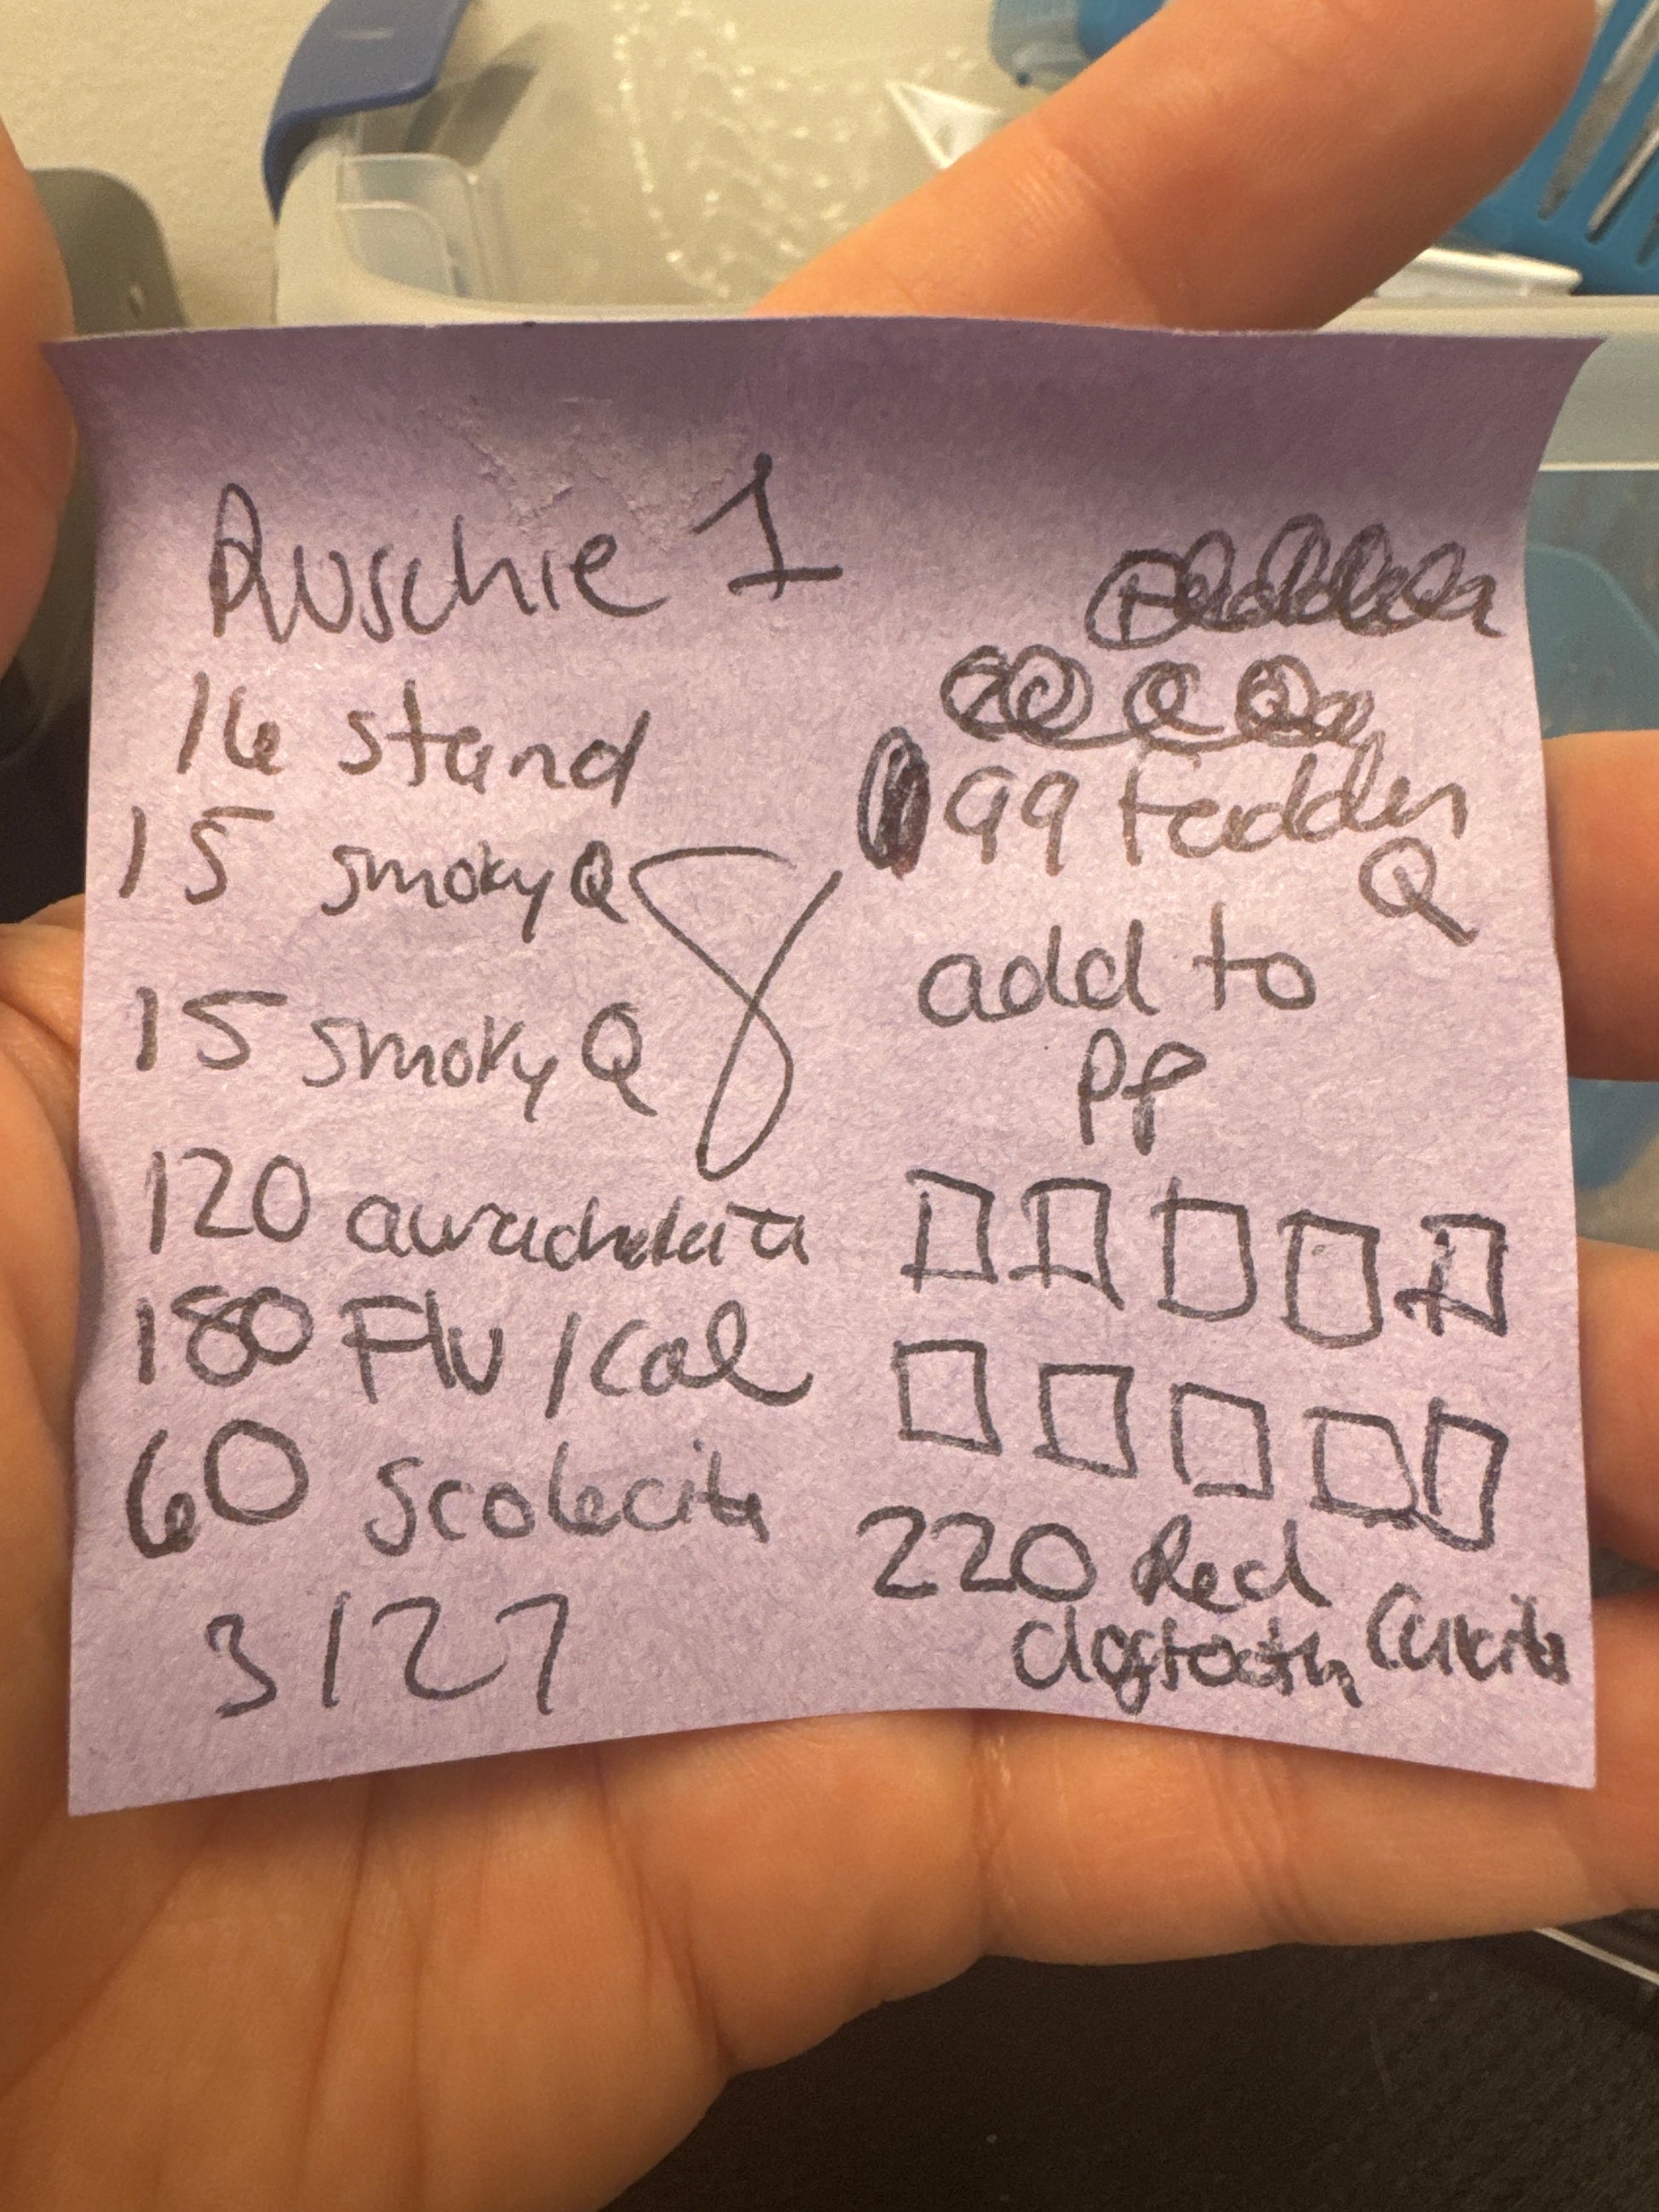 Ruschie 1
16 stand
15 smoky Q
15 smoky Q
120
180 Flu/Cal
60 scolecite
3127
99 Fadden
Q
add to
PP
220 Red
dogtooth Calcite